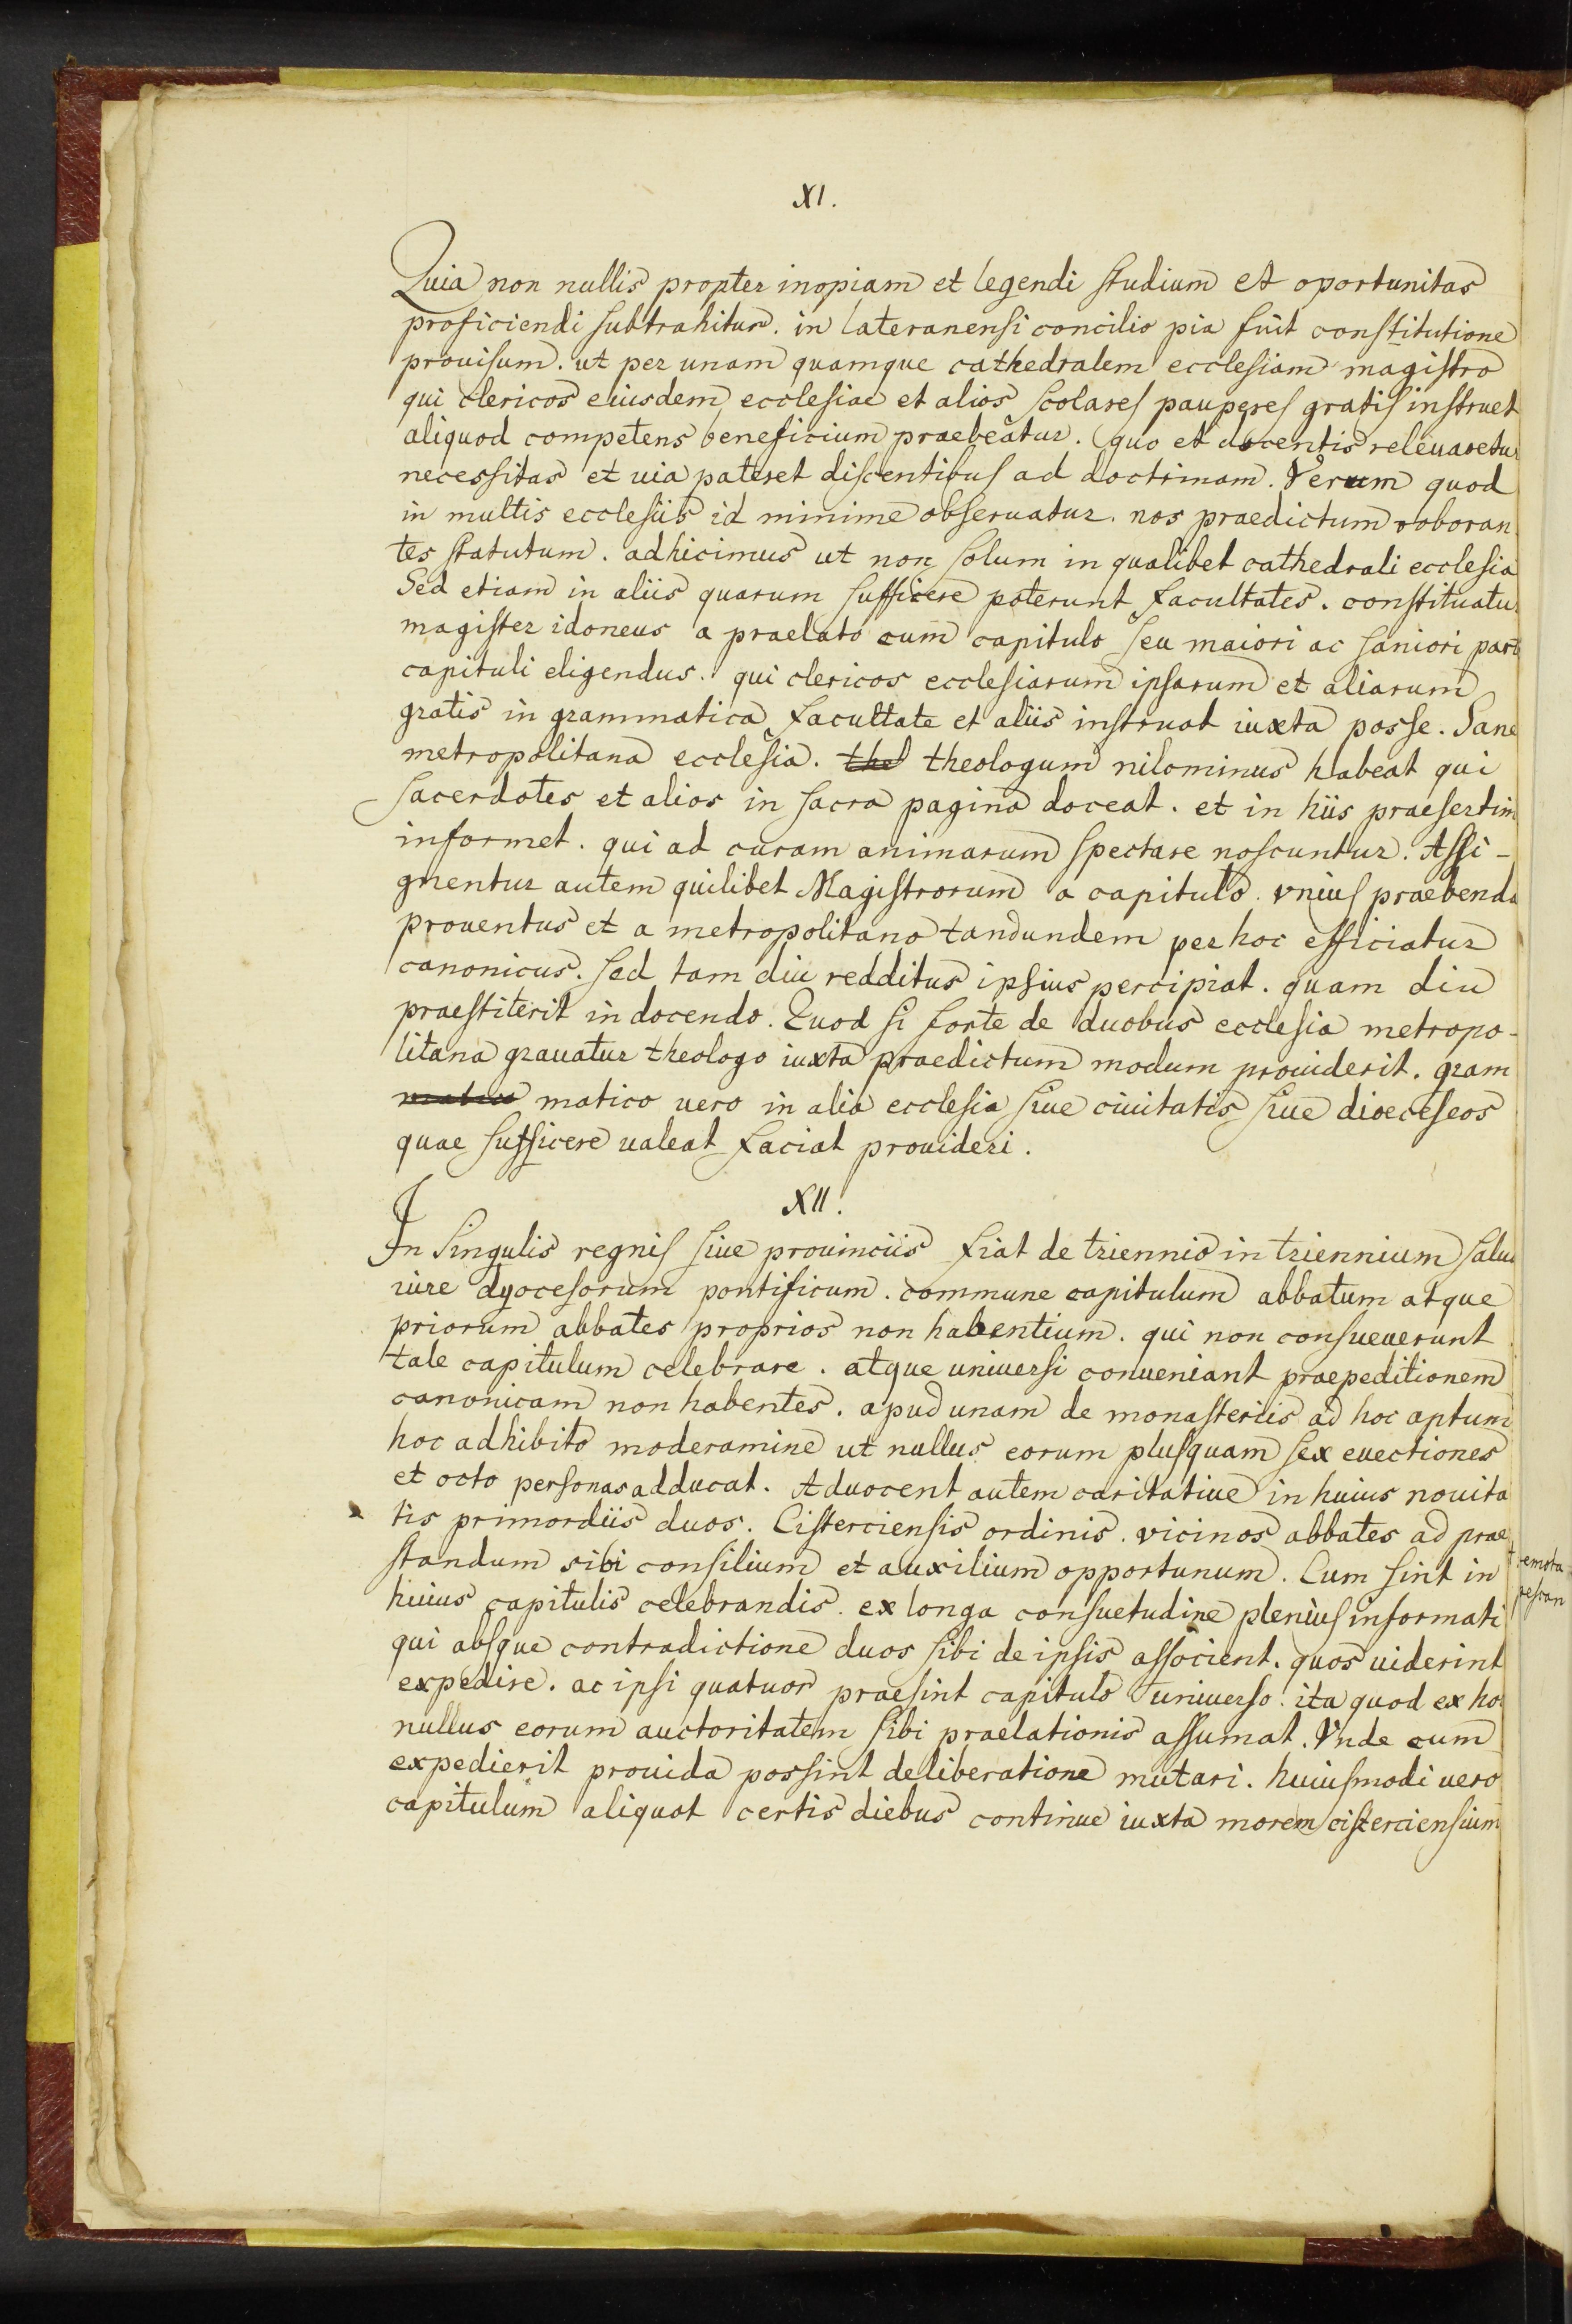 XI.
Quia non nullis propter inopiam et legendi studium et oportunitas
proficiendi subtrahitur. in lateranensi concilio pia fuit constitutione
prouisum. ut per unam quamque cathedralem ecclesiam magistro
qui clericos eiusdem ecclesiae et alios scolares pauperes gratis instruet
aliquod competens beneficium praebeatur. quo et docentis releuaretur
necessitas et uia pateret discentibus ad doctrinam. Verum quod
in multis ecclesiis id minime obseruatur. nos praedictum roboran
tes statutum. adhicimus ut non solum in qualibet cathedrali ecclesia
Sed etiam in aliis quarum sufficere poterunt facultates. constituatur
magister idoneus a praelato cum capitulo seu maiori ac saniori parte
capituli eligendus. qui clericos ecclesiarum ipsarum et aliarum
gratis in grammatica facultate et aliis instruat iuxta posse. Sane
metropolitana ecclesia. the theologum nilominus habeat qui
sacerdotes et alios in sacra pagina doceat. et in hiis praesertim
informet. qui ad curam animarum spectare noscuntur. Assi-
gnentur autem quilibet Magistrorum a capitulo. vnius praebenda
prouentus et a metropolitano tandundem per hoc efficiatur
canonicus. sed tam diu redditus ipsius percipiat. quam diu
praestiterit in docendo. Quod si forte de duobus ecclesia metropo-
litana grauatur theologo iuxta praedictum modum prouiderit. gram
matico matico uero in alia ecclesia siue ciuitatis siue dioeceseos
quae sufficere ualeat faciat prouideri.
XII.
In singulis regnis siue prouinciis fiat de triennio in triennium saluo
iure dyocesorum pontificum. commune capitulum abbatum atque
priorum abbates proprios non habentium. qui non consueuerunt
tale capitulum celebrare. atque uniuersi conueniant praepeditionem
canonicam non habentes. apud unam de monasteriis ad hoc aptum
hoc adhibito moderamine ut nullus eorum plusquam sex euectiones
et octo personas adducat. Aduocent autem caritatiue in huius nouita
tis primordiis duos. Cisterciensis ordinis. vicinos abbates ad prae
standum sibi consilium et auxilium opportunum. Cum sint in
huius capitulis celebrandis. ex longa consuetudine plenius informati
qui absque contradictione duos sibi de ipsis associent. quos uiderint
expedire. ac ipsi quatuor praesint capitulo uniuerso. ita quod ex hoc
nullus eorum auctoritatem sibi praelationis assumat. Vnde cum
expedierit prouida possint deliberatione mutari. huiusmodi uero
capitulum aliquot certis diebus continue iuxta morem cisterciensium